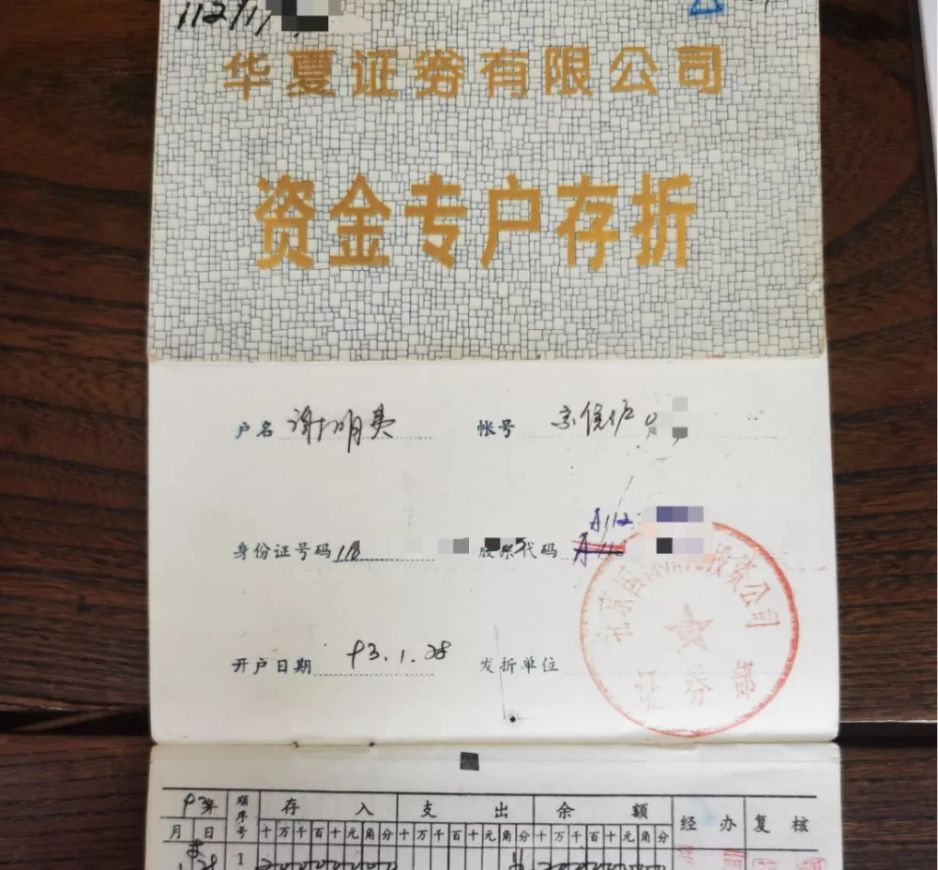 112/1
华夏证券有限公司
资金专户存折
户名 谢明 帐号 京侯伊 0
身份证号码 110 股东代码 A112
开户日期 93.1.28 发折单位
投资公司
证券部
93年 顺序号 存入 支出 余额 经办 复核
月 日 十万千百十元角分 十万千百十元角分 十万千百十元角分
1 28 1